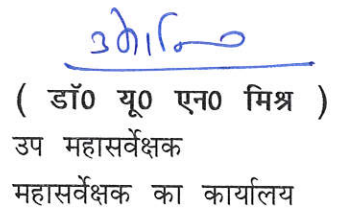 ( डॉ0 यू0 एन0 मिश्र )
उप महासर्वेक्षक
महासर्वेक्षक का कार्यालय